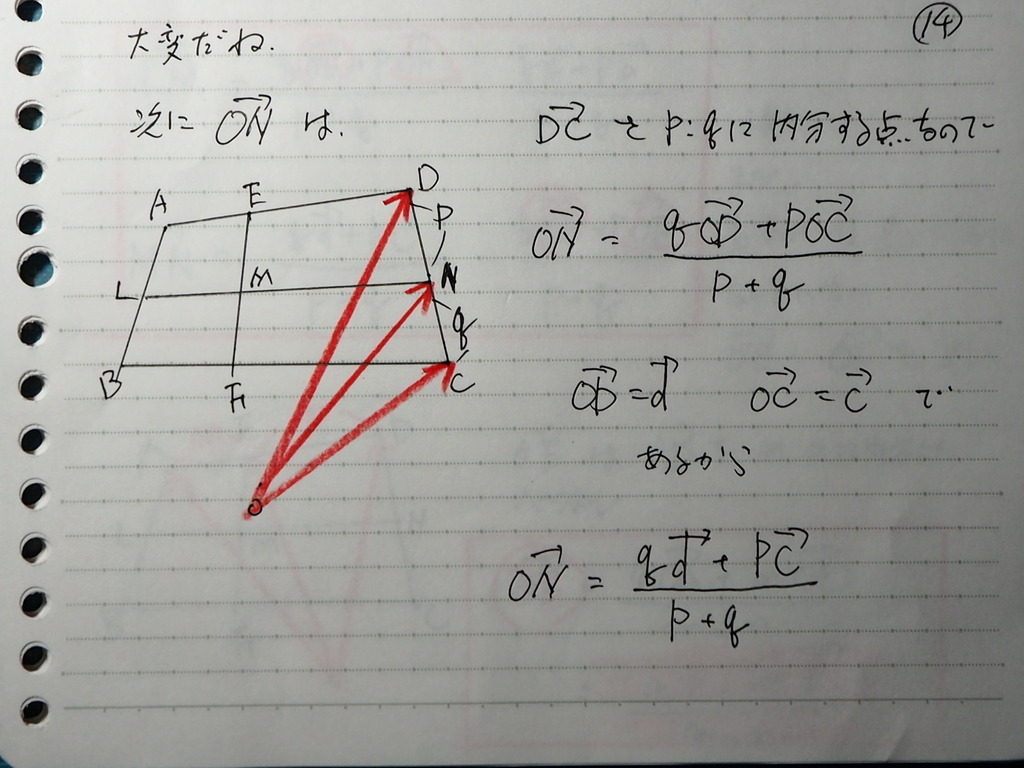 ⑭
大変だね.
次に \overrightarrow{ON} は.
\overrightarrow{DC} を p:qに内分する点なので
A E D P
L M N
q
B F C
O
\overrightarrow{ON} = \frac{q\overrightarrow{OD} + p\overrightarrow{OC}}{p+q}
\overrightarrow{OD} = \vec{d} \overrightarrow{OC} = \vec{c} で
あるから
\overrightarrow{ON} = \frac{q\vec{d} + p\vec{c}}{p+q}